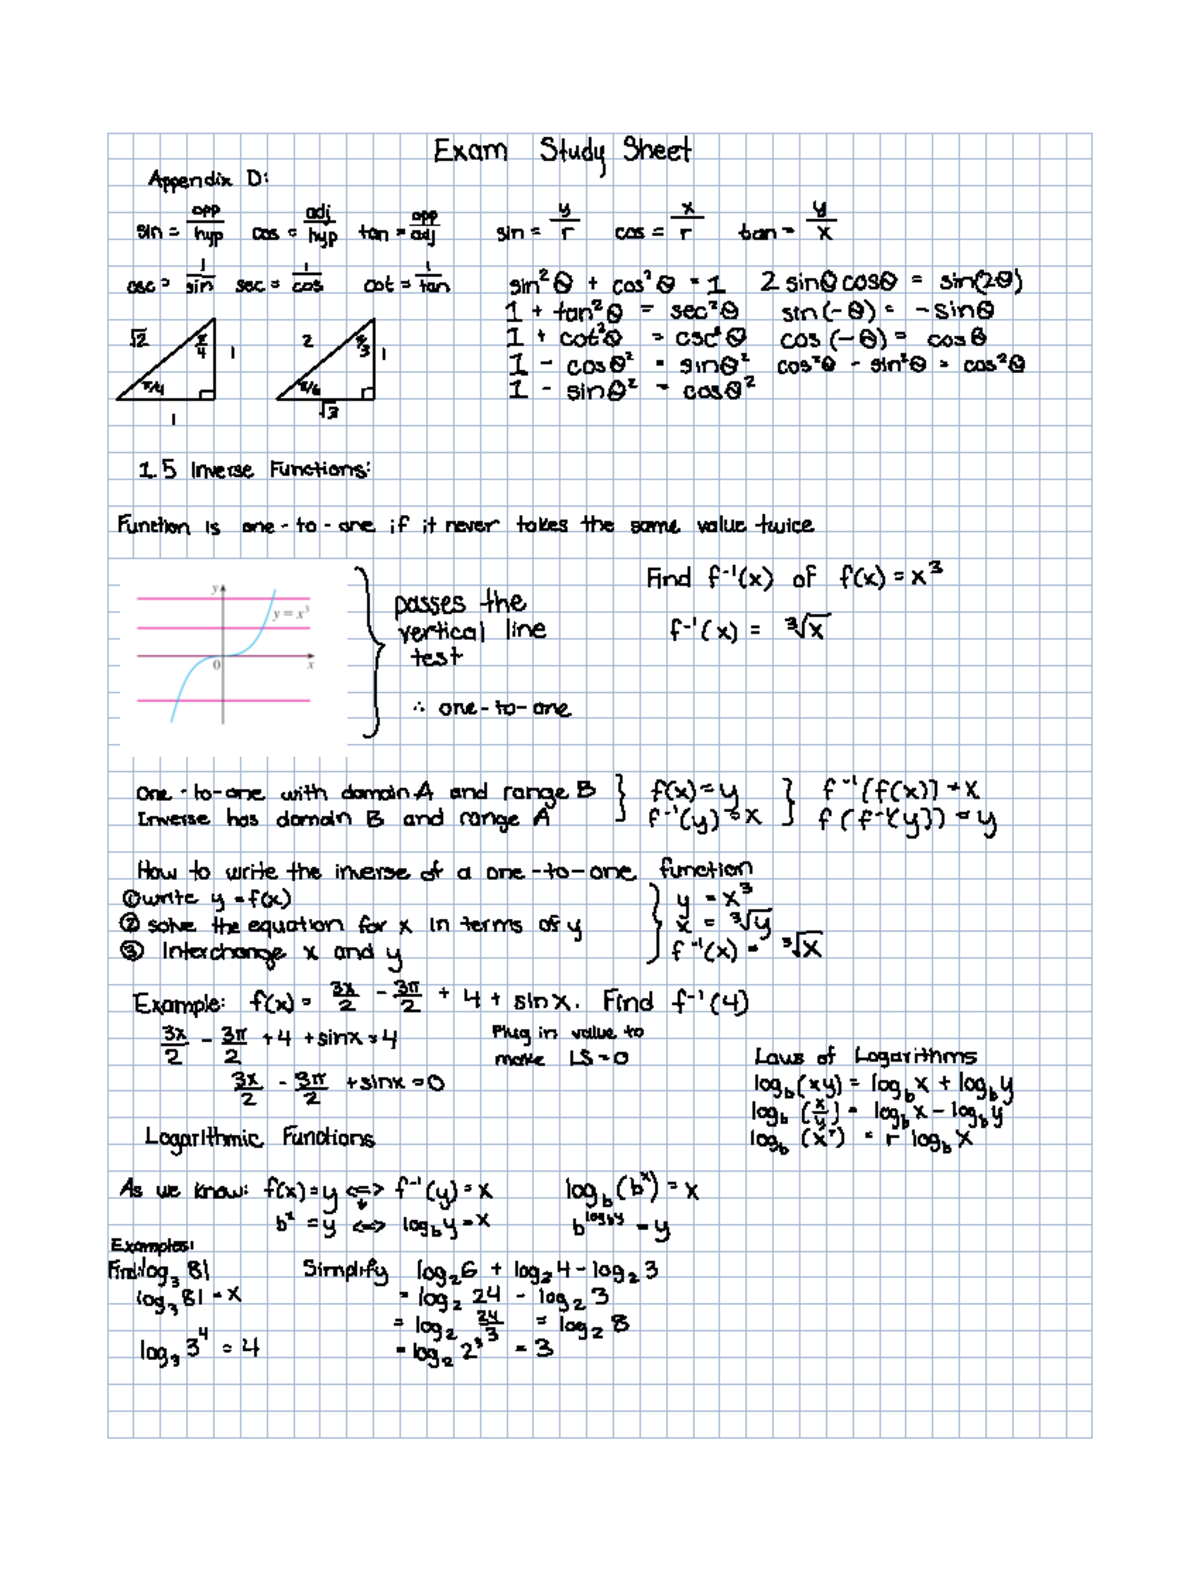 Exam Study Sheet
Appendix D:
sin = opp/hyp cos = adj/hyp tan = opp/adj sin = y/r cos = x/r tan = y/x
csc = 1/sin sec = 1/cos cot = 1/tan
sin²θ + cos²θ = 1 2 sinθ cosθ = sin(2θ)
1 + tan²θ = sec²θ sin(-θ) = -sinθ
1 + cot²θ = csc²θ cos(-θ) = cosθ
1 - cosθ² = sinθ² cos²θ - sin²θ = cos²θ
1 - sinθ² = cosθ²
√2 π/4 1 π/4 1
2 π/3 1 π/6 √3
1.5 Inverse Functions:
Function is one-to-one if it never takes the same value twice
y
y = x³
0
x
passes the
vertical line
test
∴ one-to-one
Find f⁻¹(x) of f(x) = x³
f⁻¹(x) = ³√x
One-to-one with domain A and range B } f(x) = y } f⁻¹(f(x)) = x
Inverse has domain B and range A f⁻¹(y) = x f(f⁻¹(y)) = y
How to write the inverse of a one-to-one function
① write y = f(x) y = x³
② solve the equation for x in terms of y x = ³√y
③ Interchange x and y f⁻¹(x) = ³√x
Example: f(x) = 3x/2 - 3π/2 + 4 + sinx. Find f⁻¹(4)
3x/2 - 3π/2 + 4 + sinx = 4 Plug in value to
make LS = 0
3x/2 - 3π/2 + sinx = 0
Laws of Logarithms
log_b(xy) = log_b x + log_b y
log_b(x/y) = log_b x - log_b y
log_b(xʳ) = r log_b x
Logarithmic Functions
As we know: f(x) = y <=> f⁻¹(y) = x log_b(bˣ) = x
bˣ = y <=> log_b y = x b^(log_b y) = y
Examples:
Find: log₃ 81
log₃ 81 = x
log₃ 3⁴ = 4
Simplify log₂ 6 + log₂ 4 - log₂ 3
= log₂ 24 - log₂ 3
= log₂ 24/3 = log₂ 8
= log₂ 2³ = 3